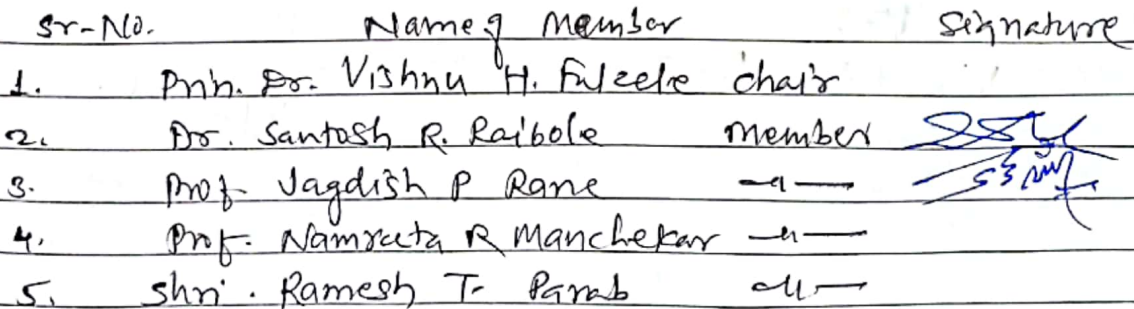 Sr-No. Name of Member Signature
1. Prin. Dr. Vishnu H. Fulzele chair
2. Dr. Santosh R. Raibole member
3. Prof. Jagdish P Rane —〃—
4. Prof. Namrata R Manchekar —〃—
5. Shri. Ramesh T. Parab —〃—